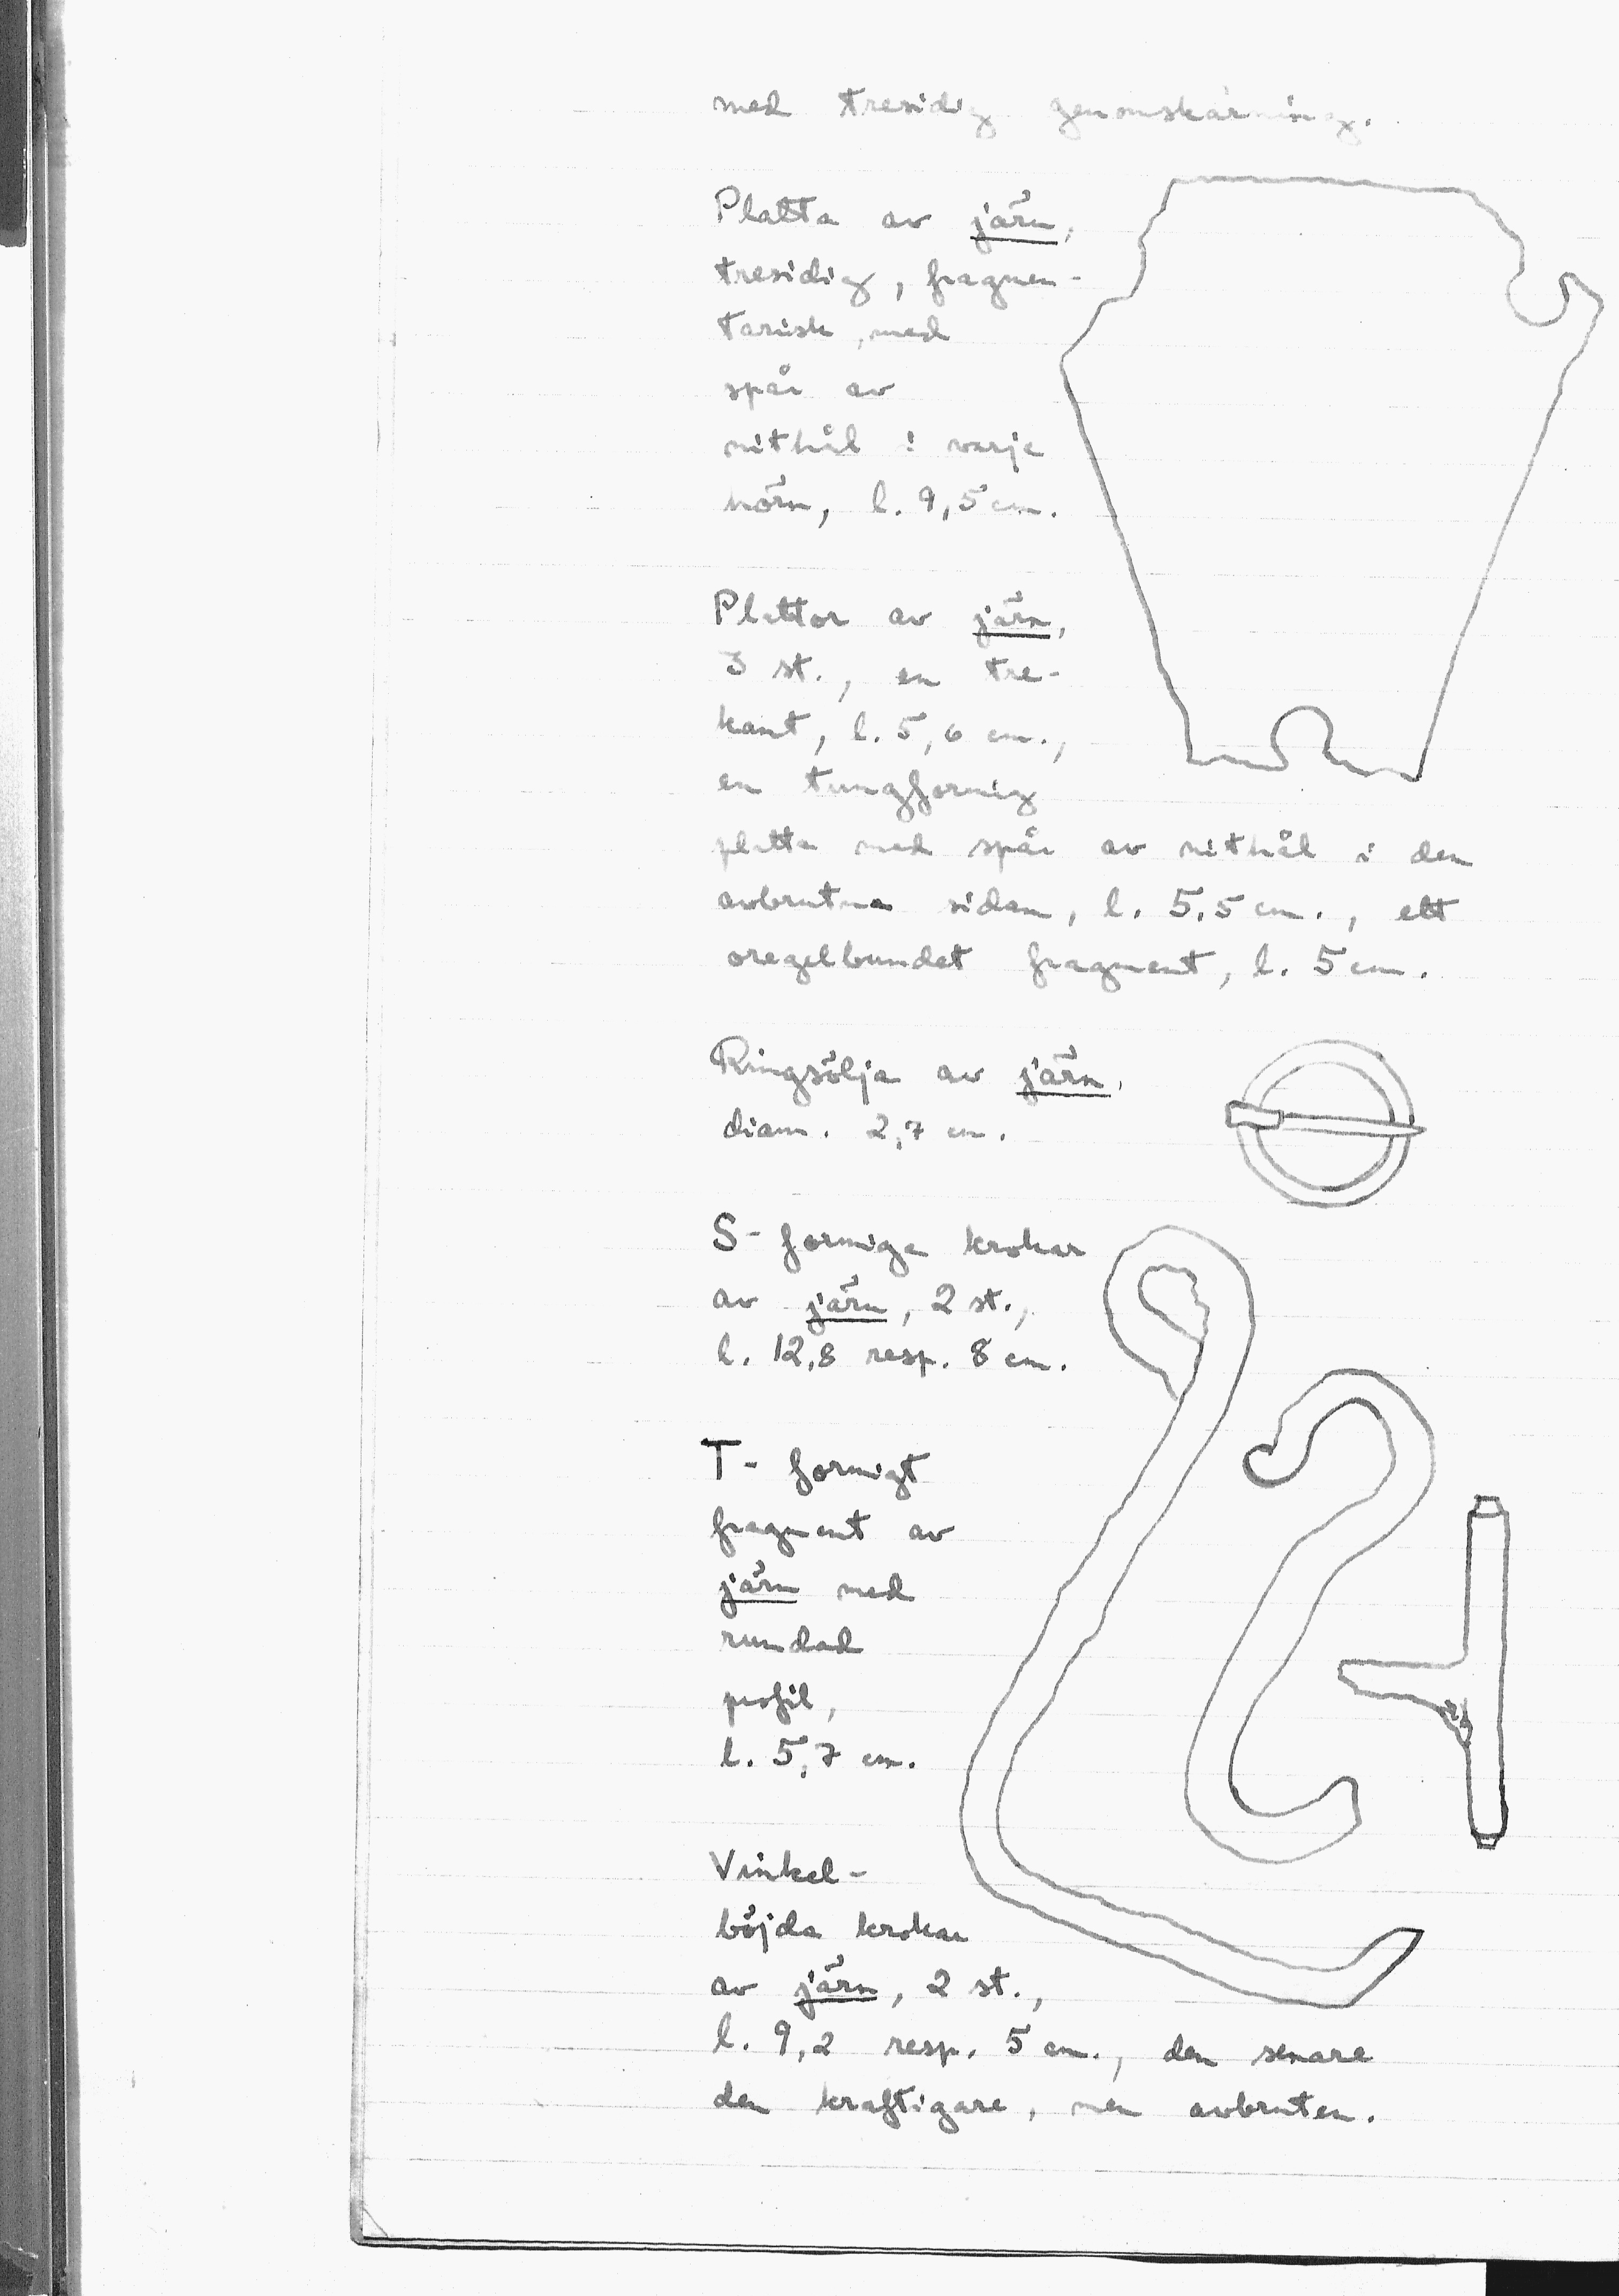 med tresidig genomskärning.
Platta av järn,
tresidig, fragmen-
tarisk, med
spår av
nithål i varje
hörn, l. 9,5 cm.
Plattor av järn,
3 st., en tre-
kant, l. 5,6 cm.,
en tungformig
platta med spår av nithål i den
avbrutna sidan, l. 5,5 cm., ett
oregelbundet fragment, l. 5 cm.
Ringsölja av järn,
diam. 2,7 cm.
S-formiga krokar
av järn, 2 st.,
l. 12,8 resp. 8 cm.
T-formigt
fragment av
järn med
rundad
profil,
l. 5,7 cm.
Vinkel-
böjda krokar
av järn, 2 st.,
l. 9,2 resp. 5 cm., den senare
den kraftigare, men avbruten.